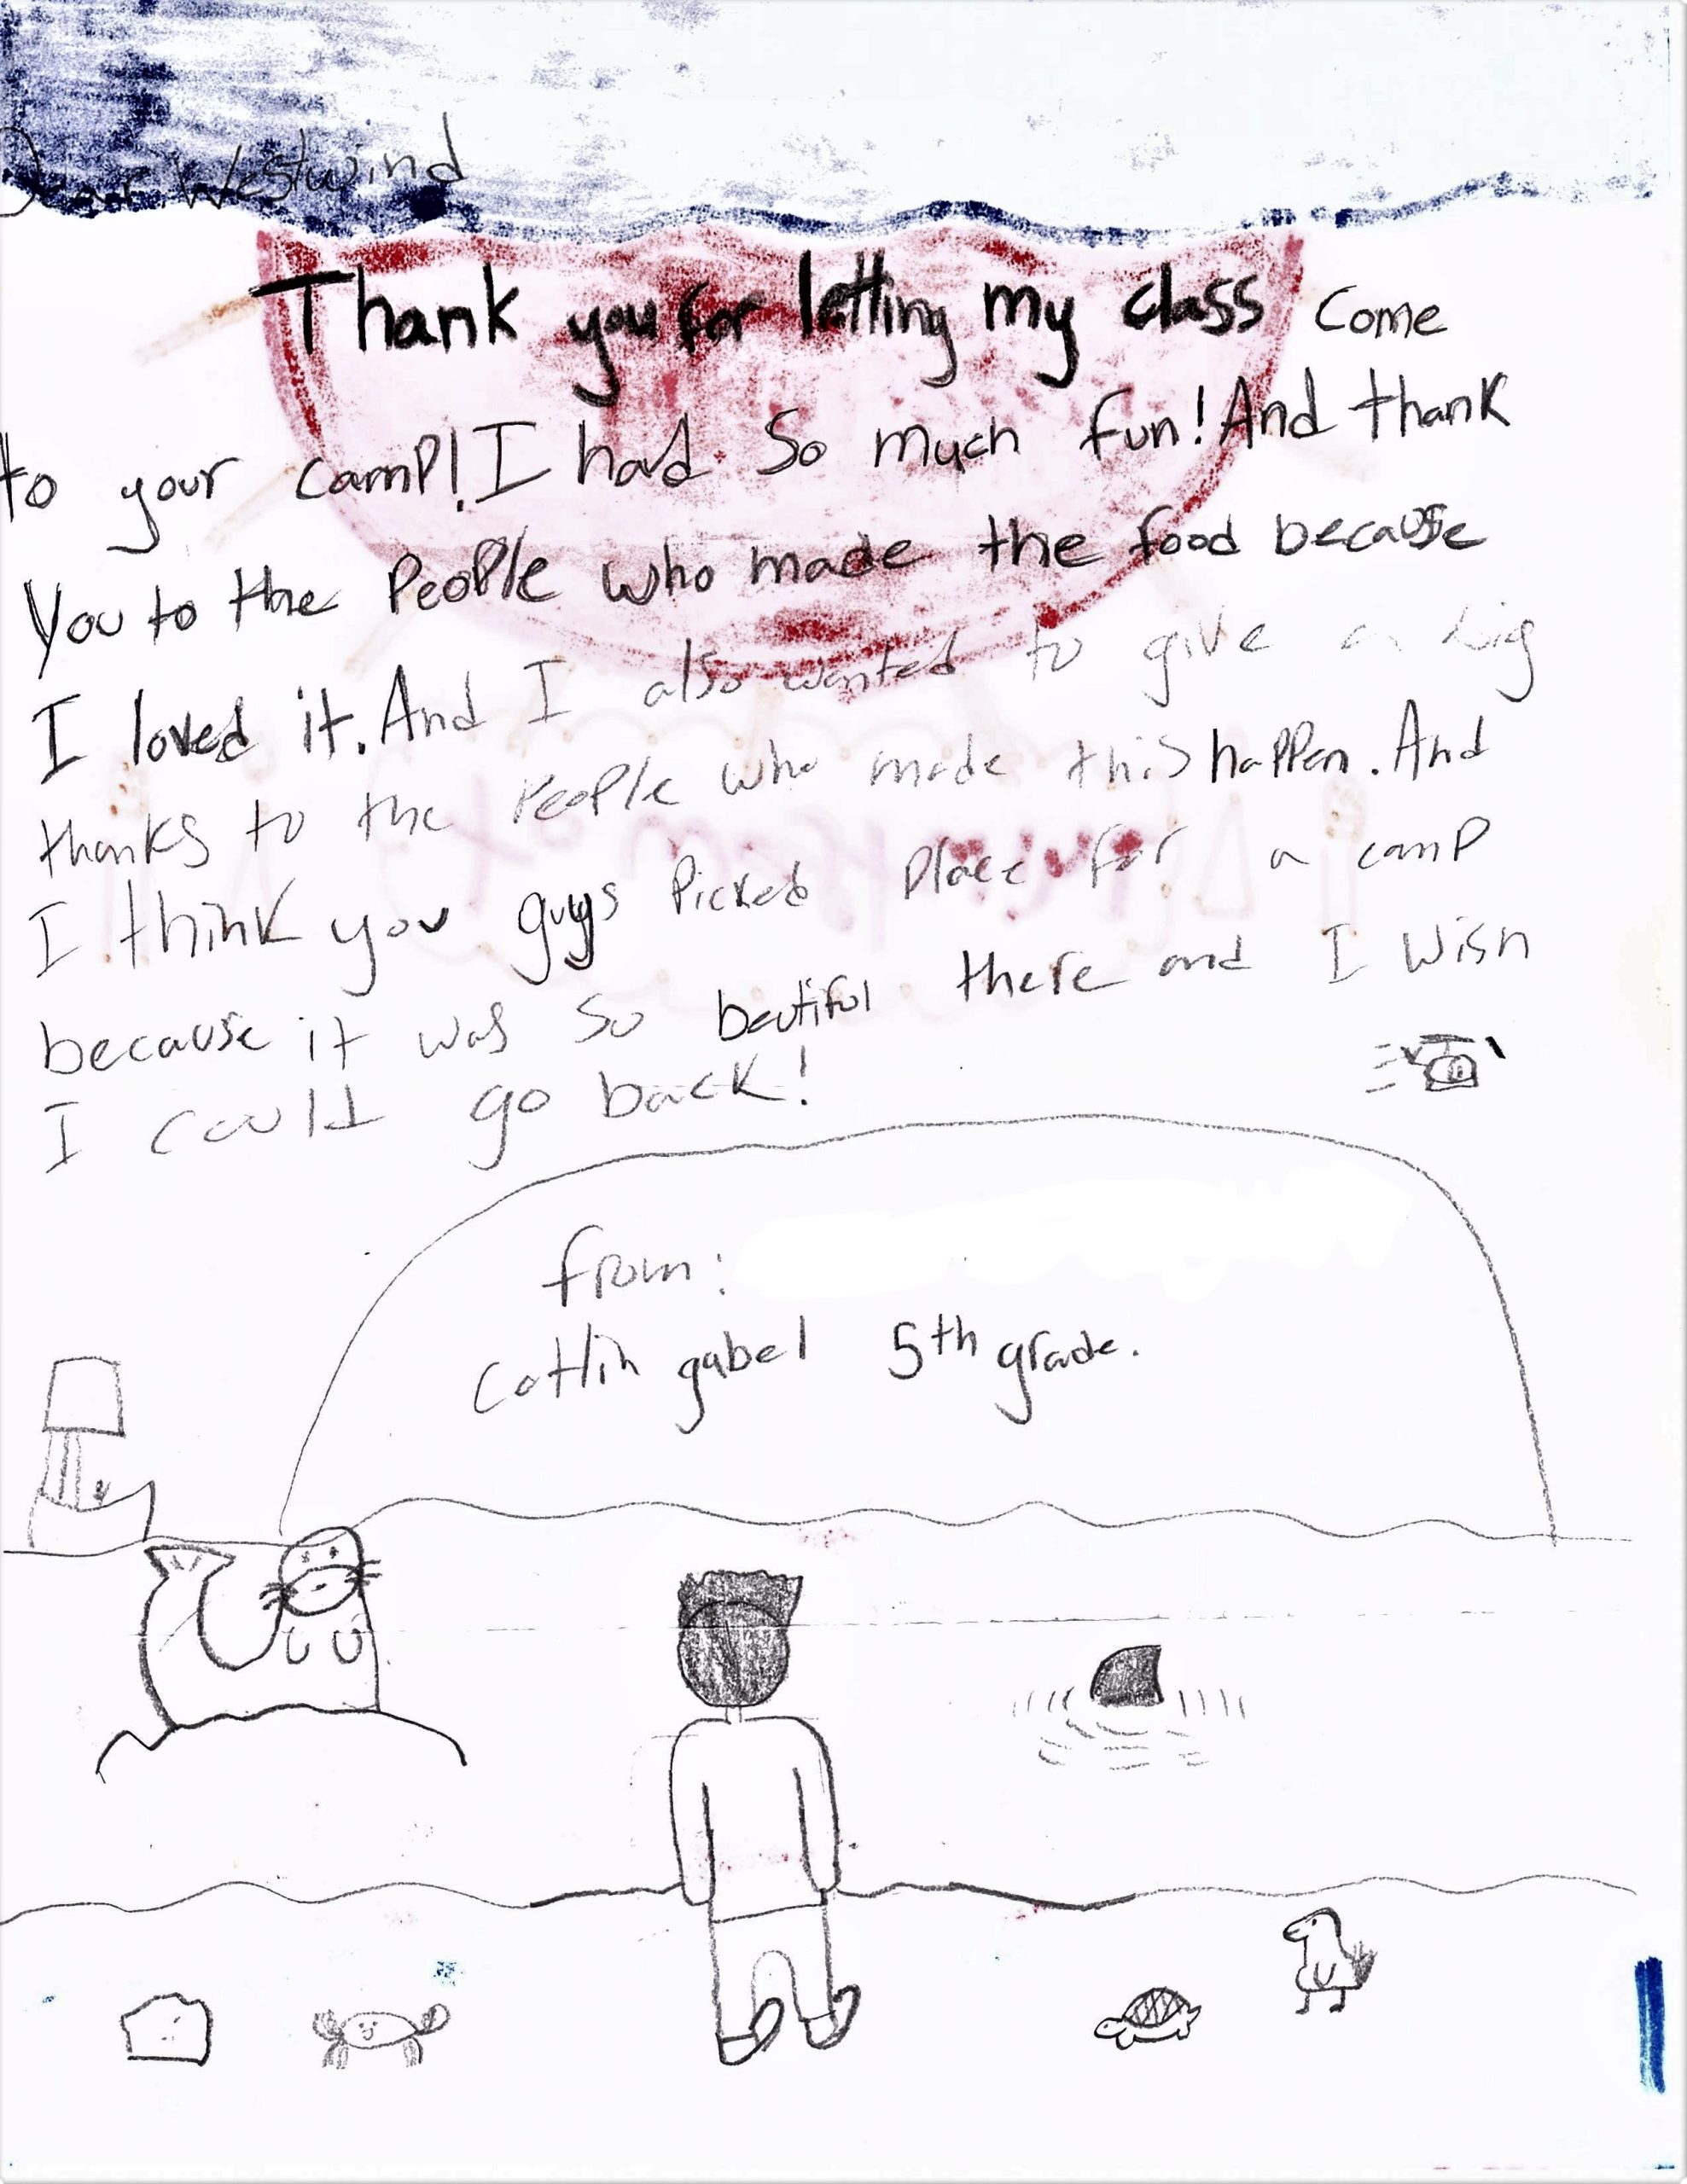 Dear Westwind
Thank you for letting my class come
to your camp! I had so much fun! And thank
You to the People who made the food because
I loved it. And I also wanted to give a big
thanks to the People who made this happen. And
I think you guys Picked Place for a camp
because it was so beutiful there and I wish
I could go back!
from:
Catlin gabel 5th grade.